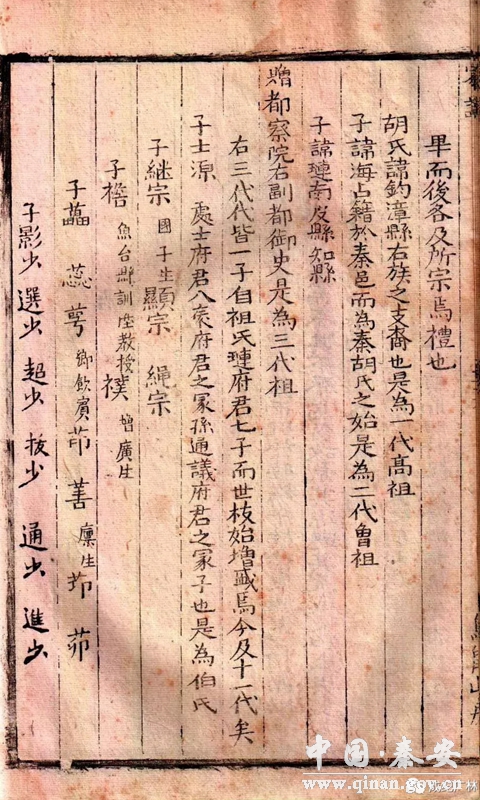 畢而後各及所宗焉禮也
胡氏諱鈞漳縣右族之支裔也是為一代髙祖
子諱海占籍於秦邑而為秦胡氏之始是為二代曾祖
子諱璉南皮縣知縣
贈都察院右副都御史是為三代祖
右三代代皆一子自祖氏璉府君七子而世枝始增盛焉今及十一代矣
子士源 處士府君八宗府君之冢孫通議府君之冢子也是為伯氏
子継宗 國子生 顯宗 繩宗
子 魚台縣訓 教授 增廣生
子 蕊 萼 鄉飲賓 芾 善 廩生 茆
子影少 選少 超少 拔少 通少 進少
中国·秦安
www.qinan.gov.cn